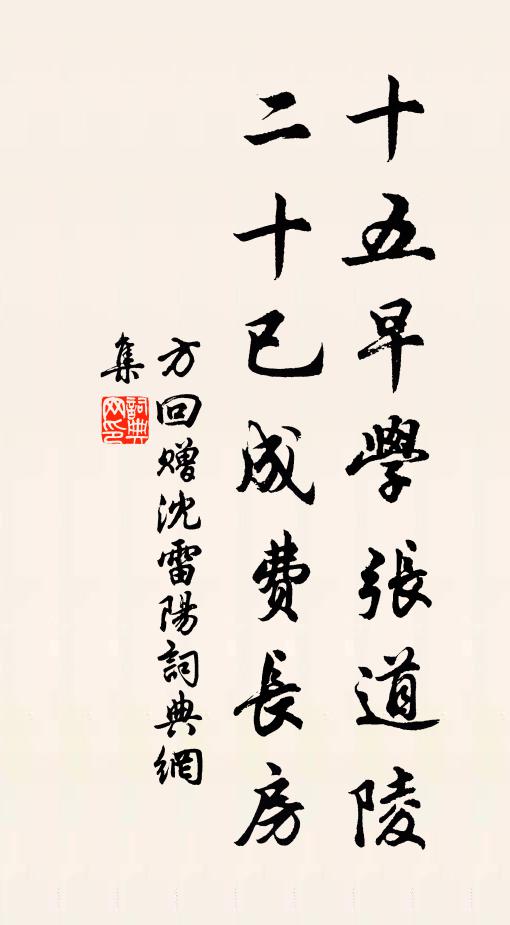 十五早學張道陵
二十已成費長房
方回贈沈雷陽詞典網
集
詞典網印